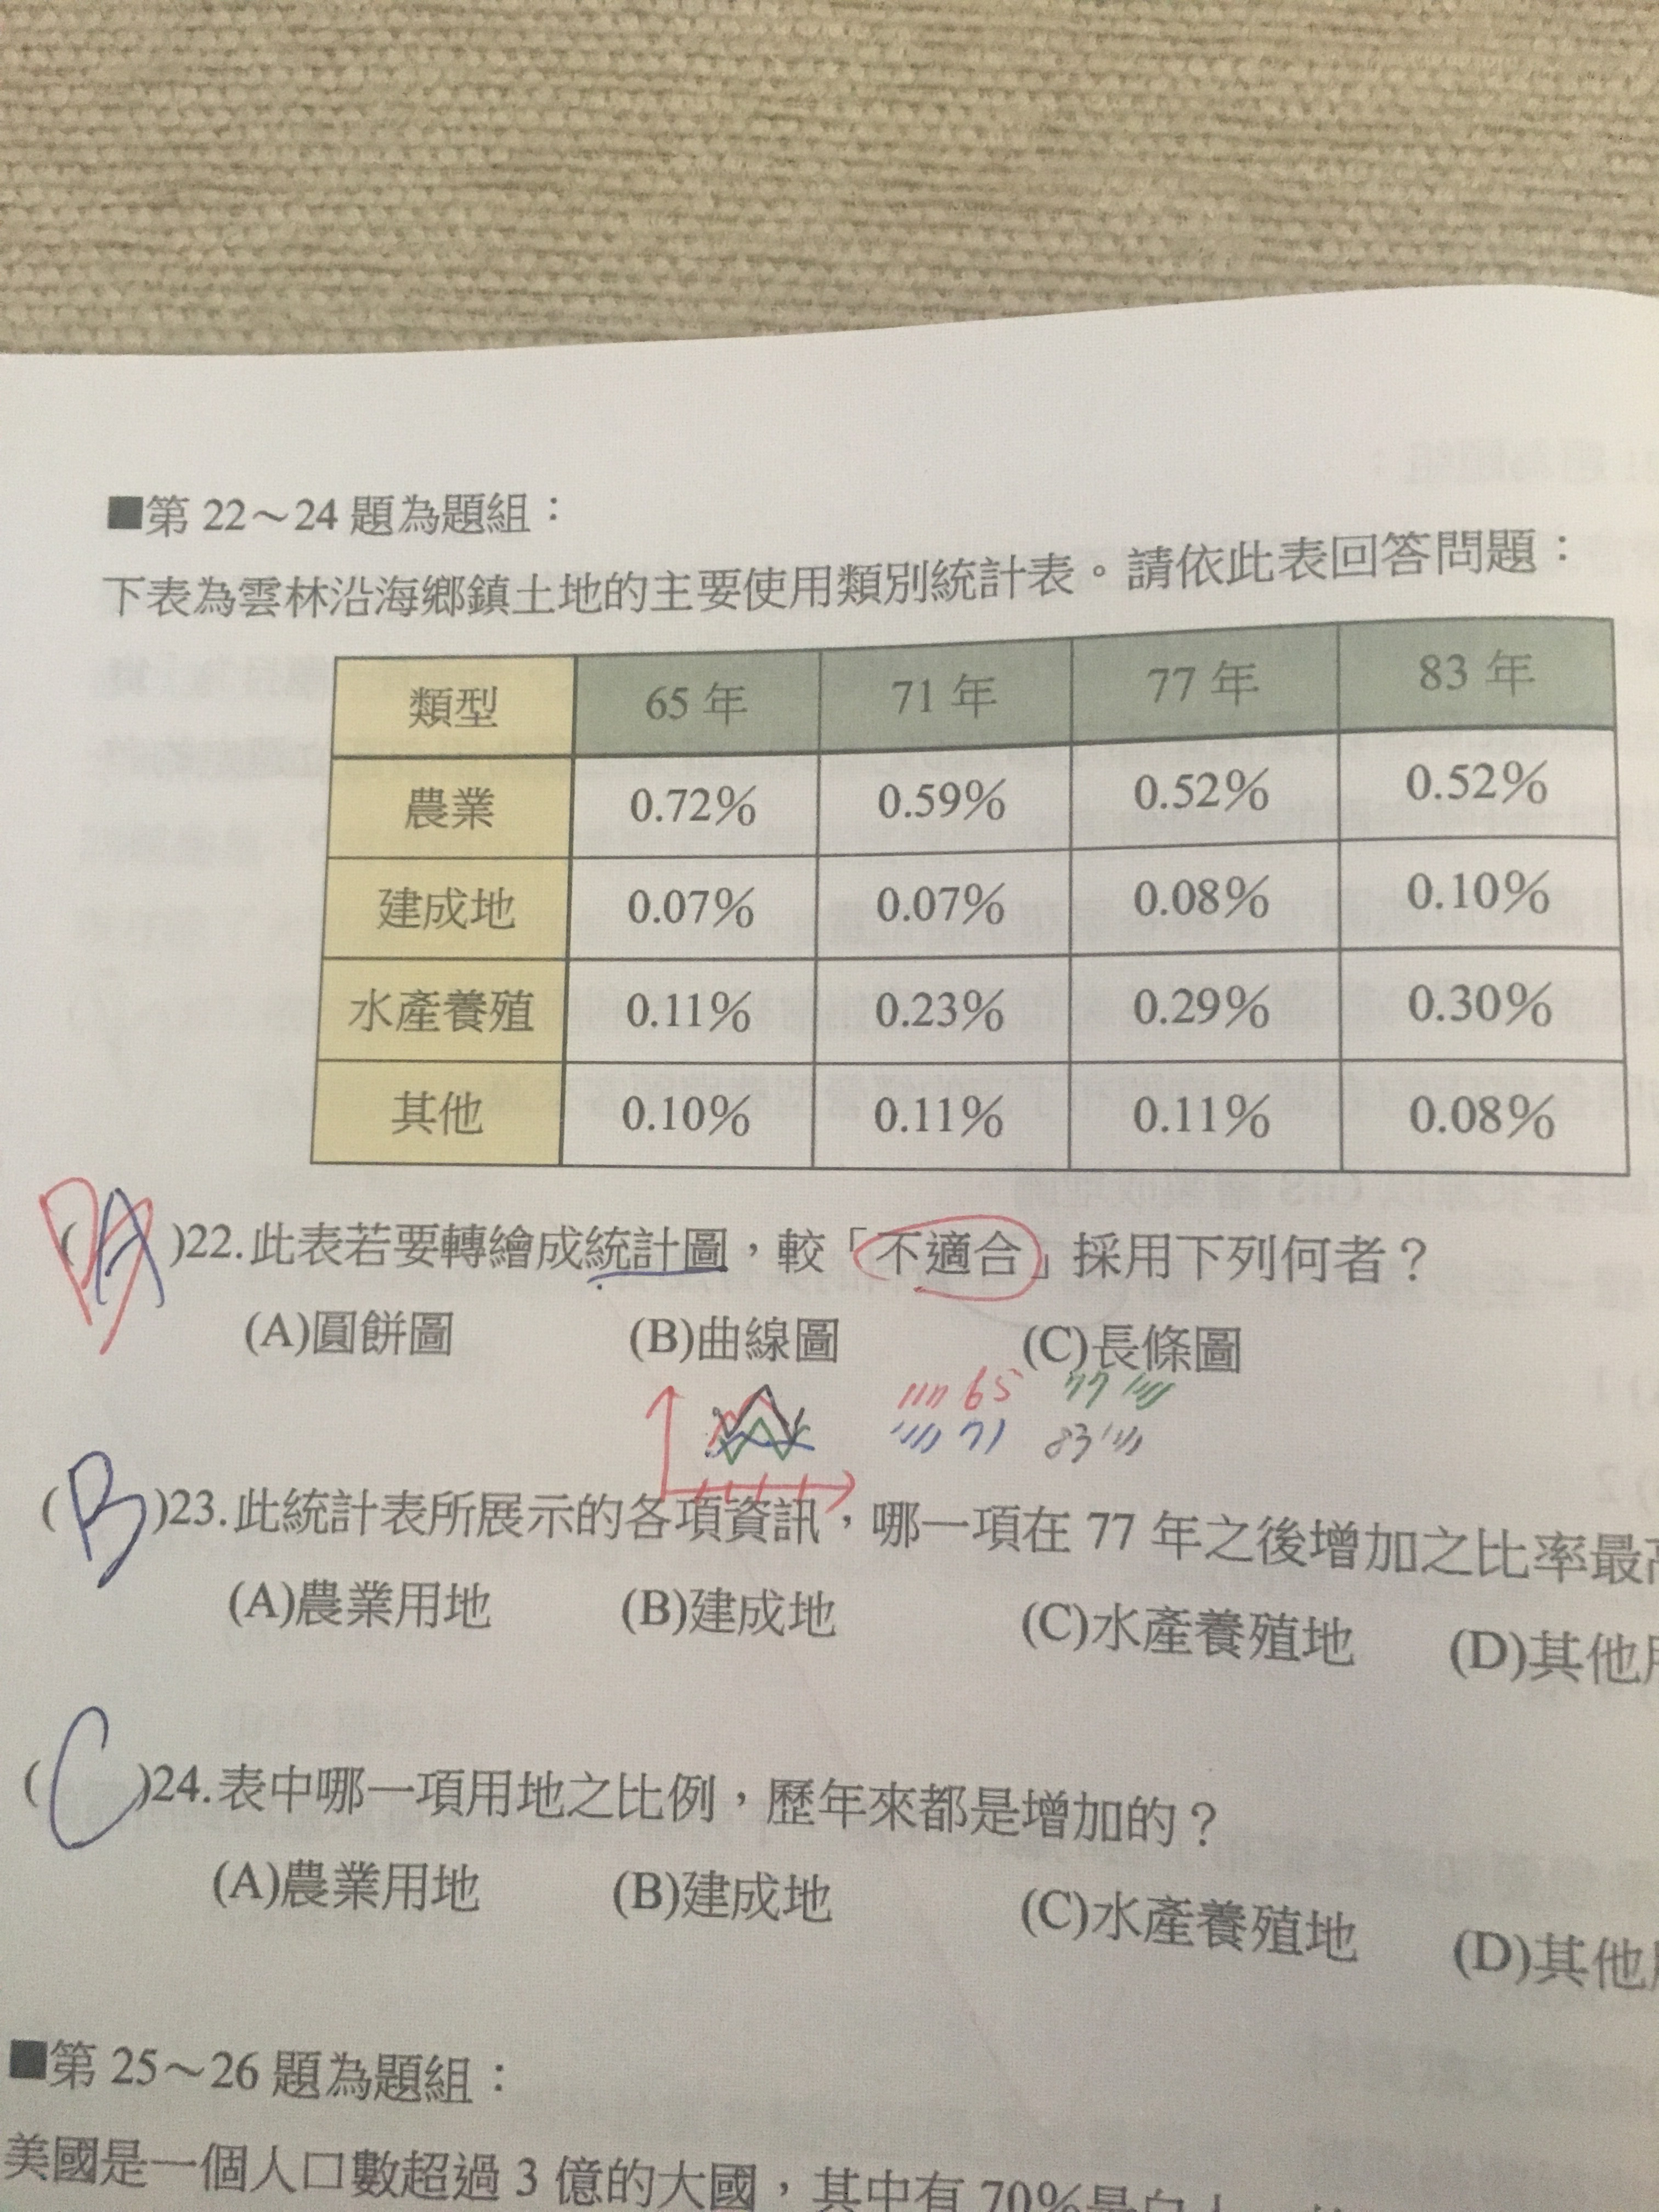 ■第 22～24 題為題組：
下表為雲林沿海鄉鎮土地的主要使用類別統計表。請依此表回答問題：
類型 65 年 71 年 77 年 83 年
農業 0.72% 0.59% 0.52% 0.52%
建成地 0.07% 0.07% 0.08% 0.10%
水產養殖 0.11% 0.23% 0.29% 0.30%
其他 0.10% 0.11% 0.11% 0.08%
( A )22.此表若要轉繪成統計圖，較「不適合」採用下列何者？
(A)圓餅圖 (B)曲線圖 (C)長條圖
65 77
71 83
( B )23.此統計表所展示的各項資訊，哪一項在 77 年之後增加之比率最
(A)農業用地 (B)建成地 (C)水產養殖地 (D)其他
( C )24.表中哪一項用地之比例，歷年來都是增加的？
(A)農業用地 (B)建成地 (C)水產養殖地 (D)其他
■第 25～26 題為題組：
美國是一個人口數超過 3 億的大國，其中有 70%是白人